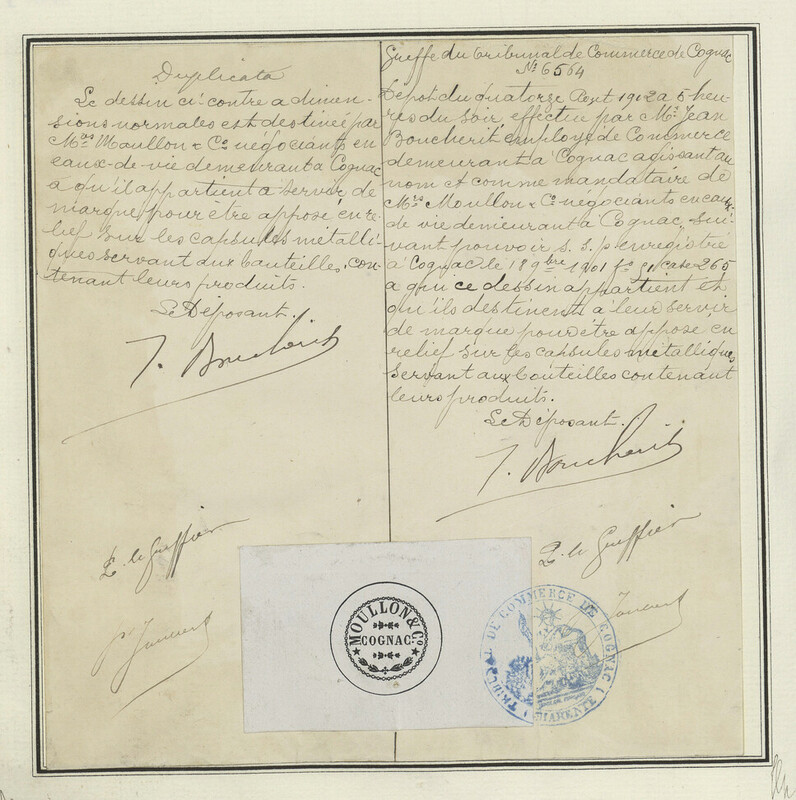 Duplicata
Le dessin ci-contre a dimen-
sions normales est destiné par
Mrs Moullon & Co négociants en
eaux-de-vie demeurant à Cognac
à qu'il appartient à servir de
marque pour être apposé en re-
lief sur les capsules métalli-
ques servant aux bouteilles con-
tenant leurs produits.
Le Déposant.
J. Boucherit
P. le Greffier
Greffe du tribunal de Commerce de Cognac
No 6564
Dépot du quatorze 1912 à 5 heu-
res du soir effectué par Mr Jean
Boucherit employé de Commerce
demeurant à Cognac agissant au
nom et comme mandataire de
Mrs Moullon & Co négociants en eaux-
de vie demeurant à Cognac, sui-
vant pouvoir s. s. p. enregistré
à Cognac le 18 9bre 1901 fo 91 case 265
a qui ce dessin appartient et
qu'ils destinent à leur servir
de marque pour être apposé en
relief sur les capsules métalliques
servant aux bouteilles contenant
leurs produits.
Le Déposant.
J. Boucherit
P. le Greffier
MOULLON & Co
COGNAC
TRIBUNAL DE COMMERCE DE COGNAC
(CHARENTE)